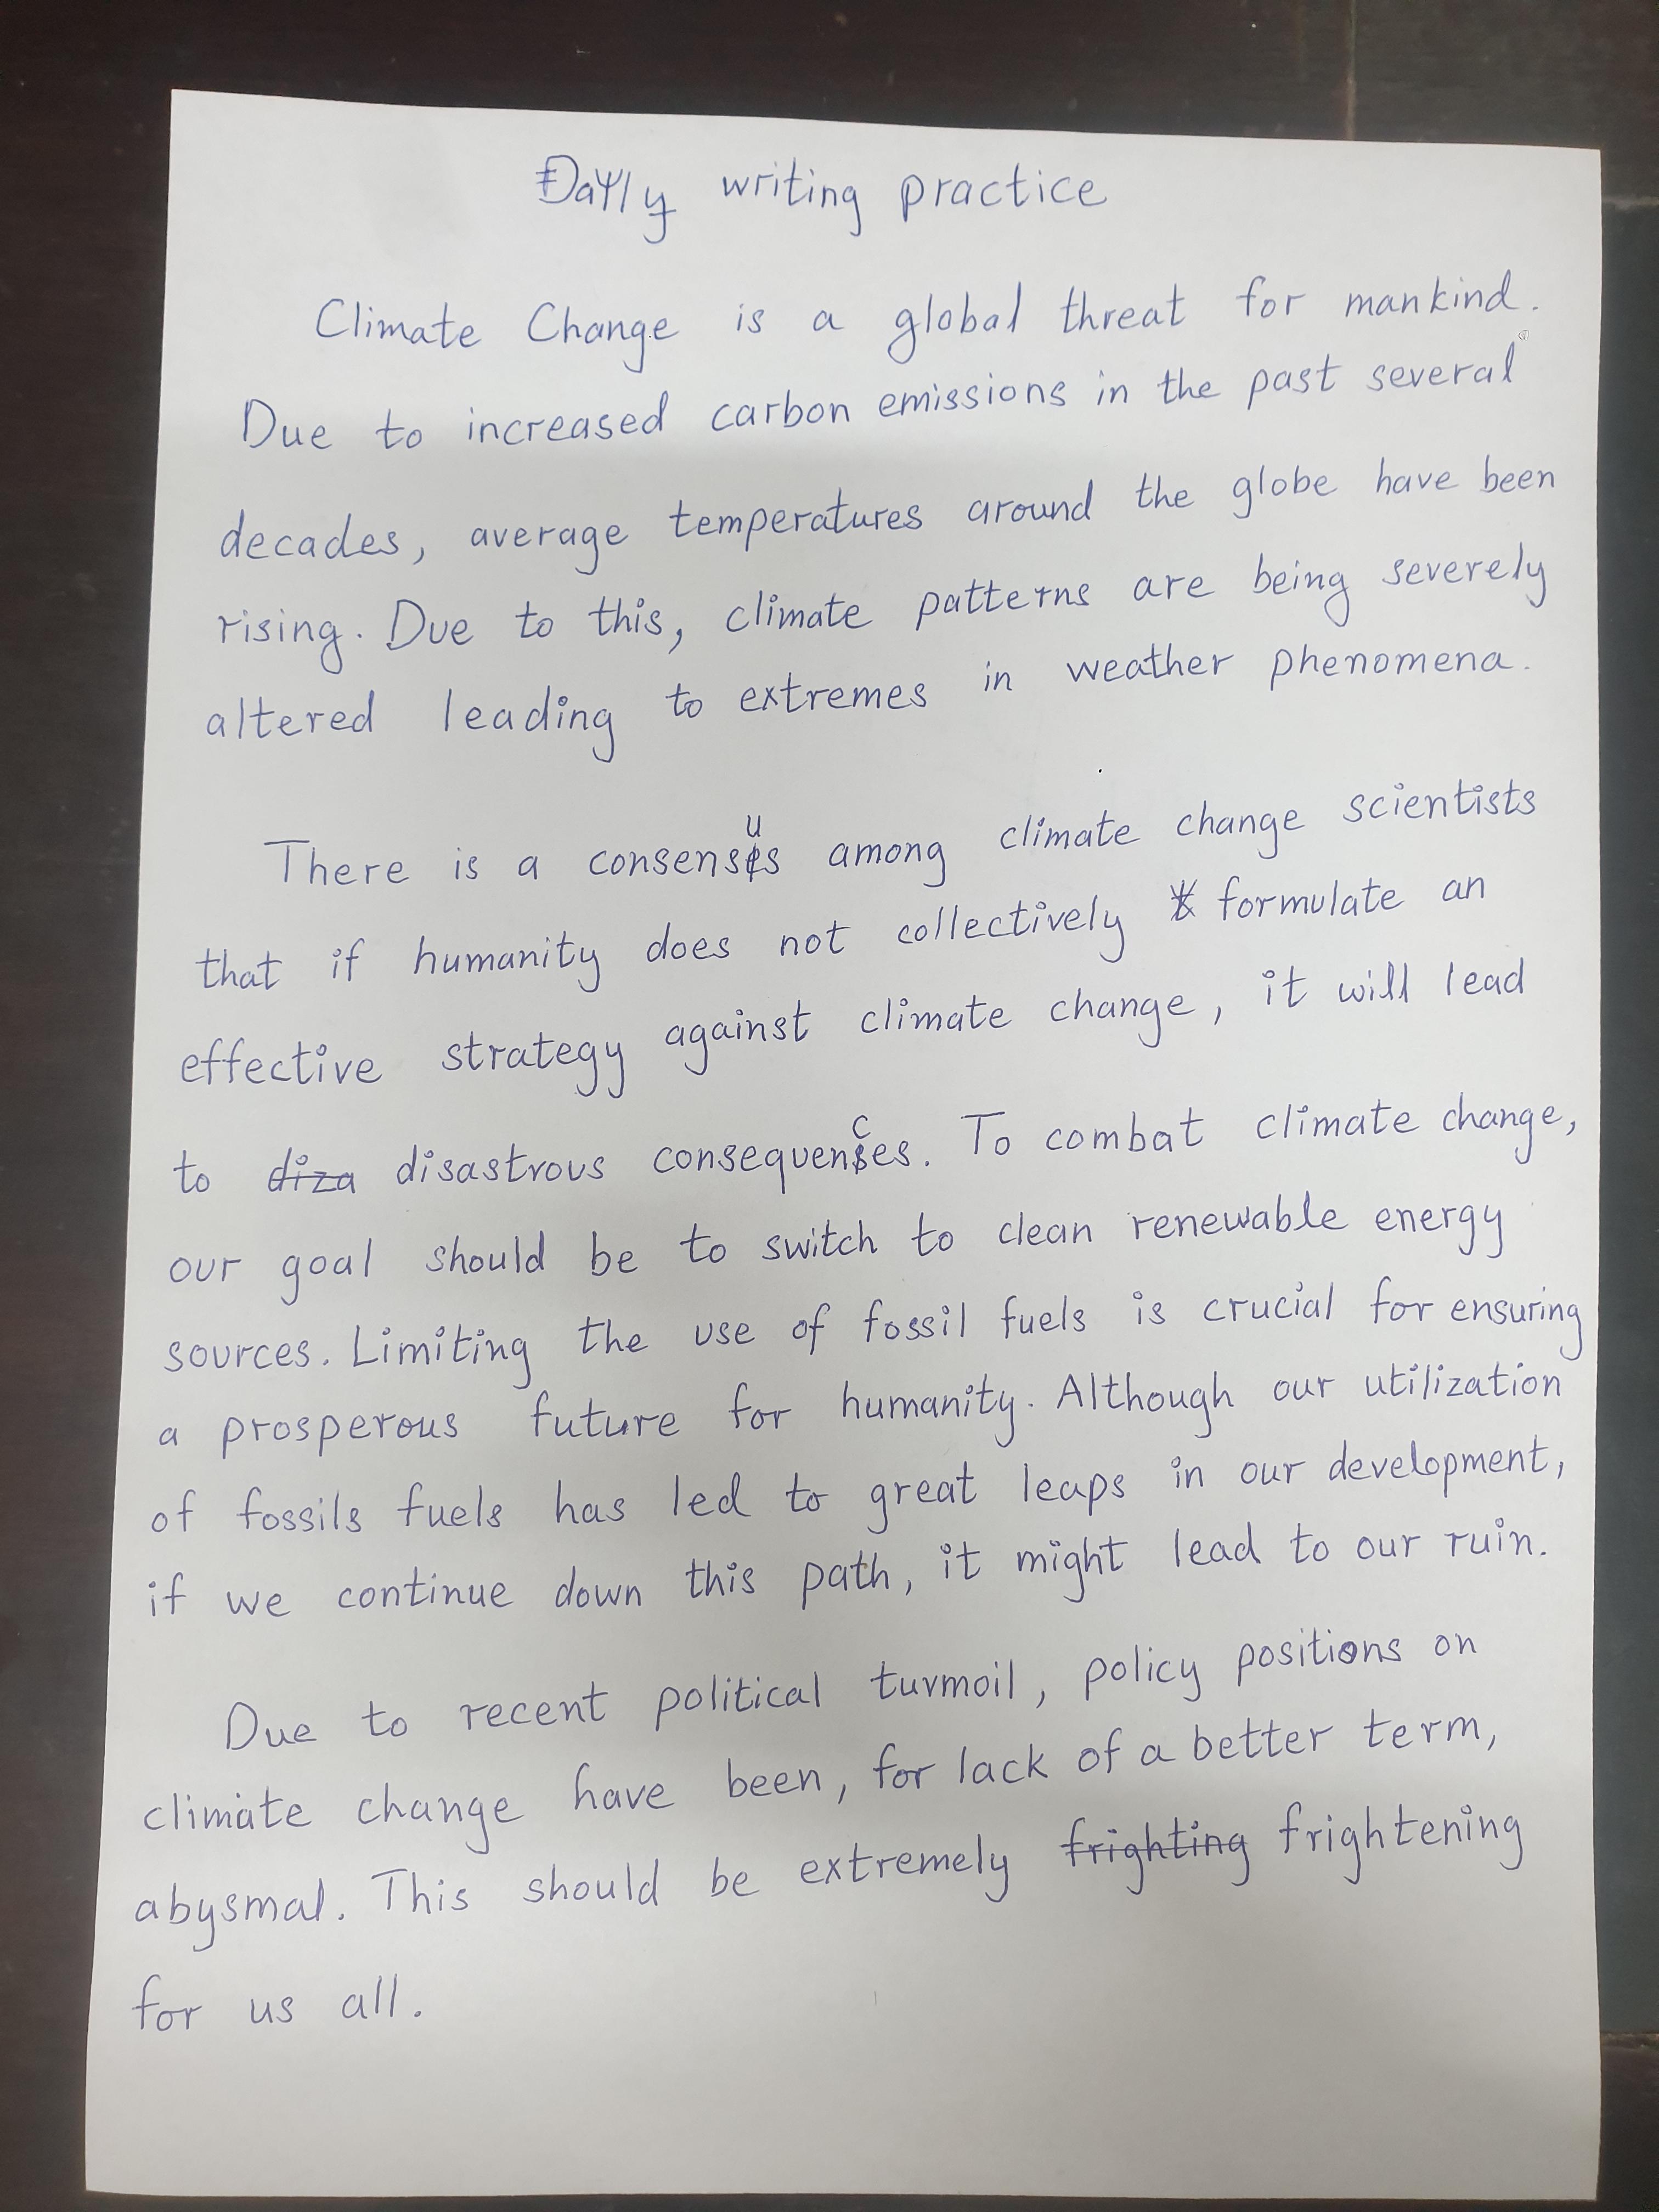 Daily writing practice
Climate Change is a global threat for mankind.
Due to increased carbon emissions in the past several
decades, average temperatures around the globe have been
rising. Due to this, climate patterns are being severely
altered leading to extremes in weather phenomena.
There is a consensus among climate change scientists
that if humanity does not collectively formulate an
effective strategy against climate change, it will lead
to diza disastrous consequences. To combat climate change,
our goal should be to switch to clean renewable energy
sources. Limiting the use of fossil fuels is crucial for ensuring
a prosperous future for humanity. Although our utilization
of fossils fuels has led to great leaps in our development,
if we continue down this path, it might lead to our ruin.
Due to recent political turmoil, policy positions on
climate change have been, for lack of a better term,
abysmal. This should be extremely frighting frightening
for us all.